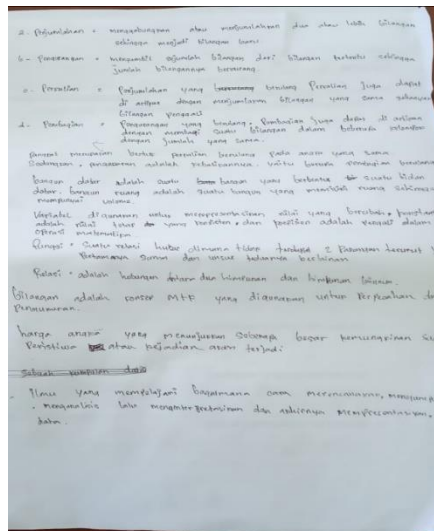 a. Penjumlahan = menggabungkan atau menjumlahkan dua atau lebih bilangan
sehingga menjadi bilangan baru
b. Pengurangan = mengambil sejumlah bilangan dari bilangan tertentu sehingga
jumlah bilangannya berkurang.
c. Perkalian = Penjumlahan yang berulang Perkalian juga dapat
di artikan dengan menjumlahkan bilangan yang sama sebanyak
bilangan pengali
d. Pembagian = Pengurangan yang berulang, Pembagian juga dapat di artikan
dengan membagi suatu bilangan dalam beberapa kelompok
dengan jumlah yang sama.
merupakan bentuk perkalian berulang pada angka yang sama
Sedangkan, adalah kebalikannya. yaitu berupa pembagian
bangun datar adalah suatu bangun yang berbentuk suatu bidang
datar. bangun ruang adalah suatu bangun yang memiliki ruang sehingga
mempunyai volume.
Variabel digunakan untuk merepresentasikan nilai yang berubah,
adalah nilai tetap yang, dan adalah dalam
operasi matematika
fungsi = Suatu relasi dimana tidak terdapat 2 Pasangan terurut
Pertamanya sama dan unsur keduanya berlainan
Relasi = adalah hubungan antara dan himpunan dan himpunan lainnya.
Bilangan adalah konsep MTK yang digunakan untuk
Pengukuran.
harga angka yang menunjukkan seberapa besar kemungkinan
Peristiwa atau kejadian akan terjadi.
Sebuah kumpulan
- Ilmu yang mempelajari bagaimana cara merencanakan,
, menganalisis lalu menginterpretasikan dan akhirnya mempresentasikan
data.